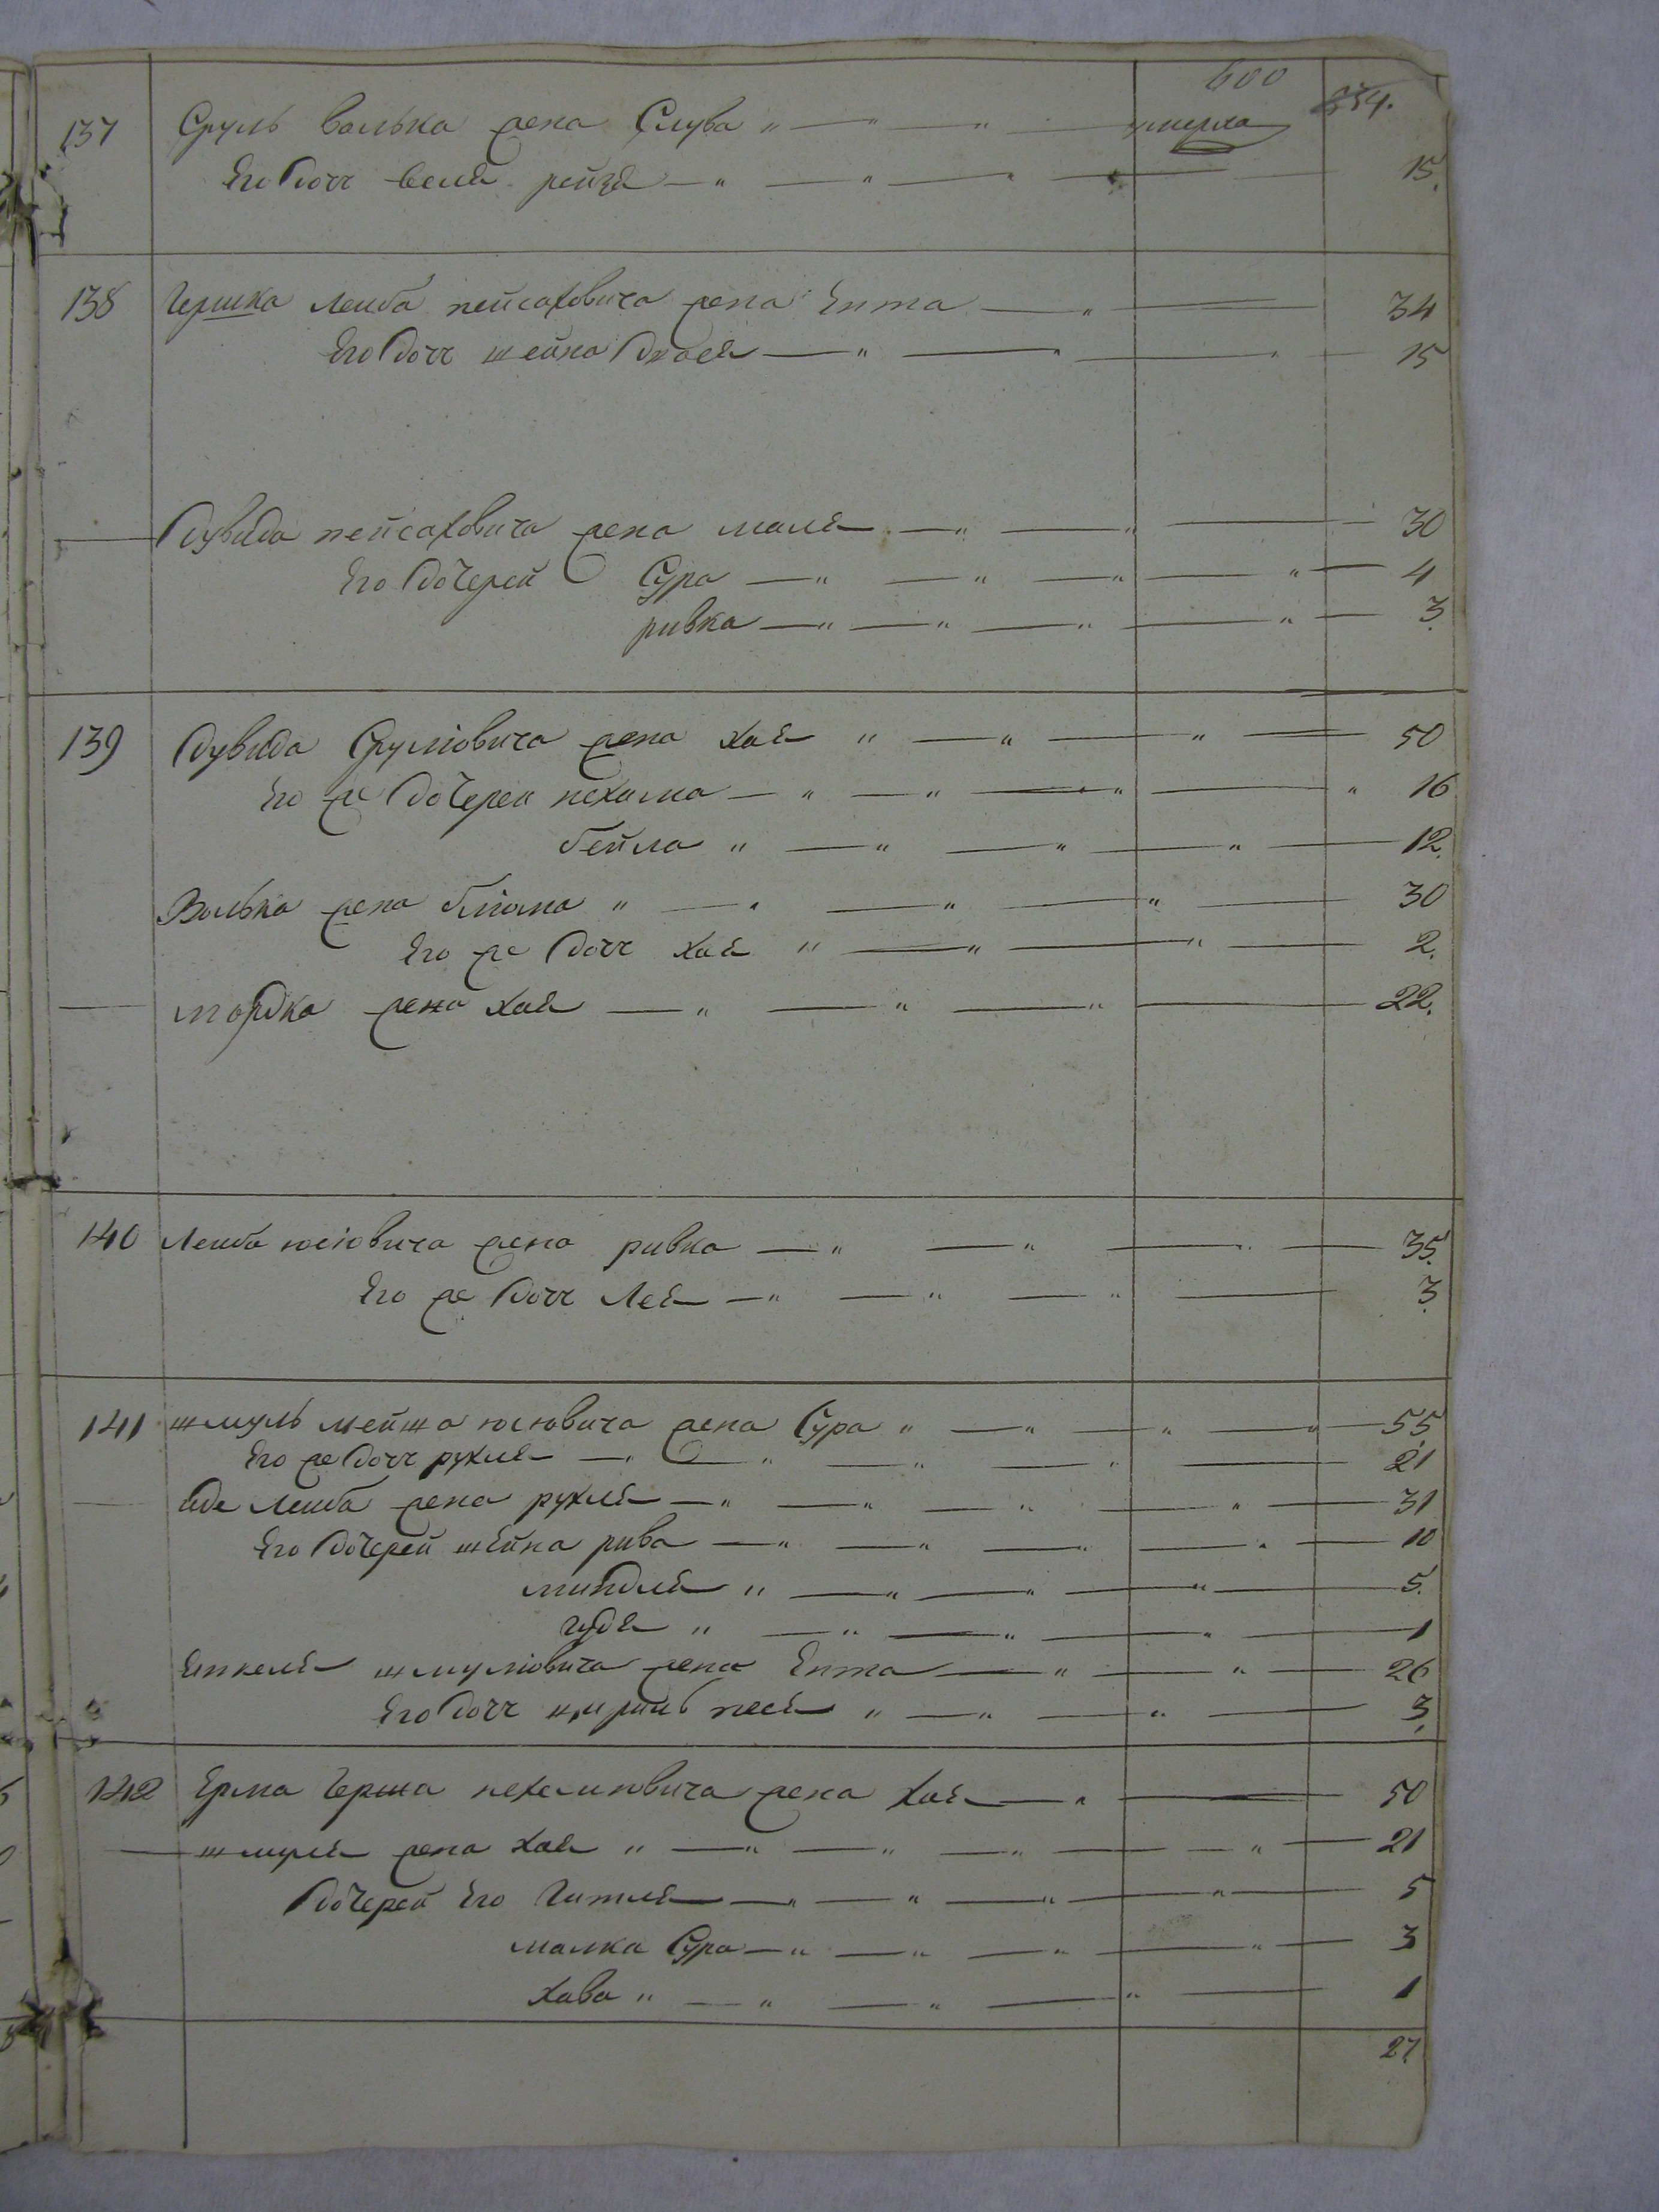 600
334.
137 Сруль Волька жена Слува " — " — " — умерла
Его дочь Беля рейзя — " — " — " — 15.
138 Гершка Лейба пейсаховича жена Ента — " — 34
Его дочь шейна двося — " — " — " — 15
Дувида пейсаховича жена маля — " — " — 30
Его дочерей Сура — " — " — " — " — 4
ривка — " — " — " — " — 3.
139 Дувида Сруліовича жена хая " — " — " — 50
Его же дочерей нехама — " — " — " — " 16
бейла " — " — " — " — 12.
Волька жена бліома " — " — " — " — 30
Его же дочь хая " — " — " — 2.
мордка жена хая — " — " — " — 22.
140 Лейба юсіовича жена ривка — " — " — " — 35.
Его же дочь Лея — " — " — " — 3.
141 шмуль мейша юсіовича жена Сура " — " — " — " — 55
Его же дочь рухля — " — " — " — " — 21
иде Лейба жена рухля — " — " — " — " — 31
Его дочерей шейна рива — " — " — " — " — 10
миндля " — " — " — " — 5.
гудя " — " — " — " — 1
Янкеля шмуліовича жена Ента — " — " — 26
Его дочь песя " — " — " — 3.
142 Ерма Герша нехемиовича жена хая — " — 50
шмуля жена хая " — " — " — " — " — 21
дочерей Его Гитля — " — " — " — " — 5
малка Сура — " — " — " — " — 3
хава " — " — " — " — 1
27